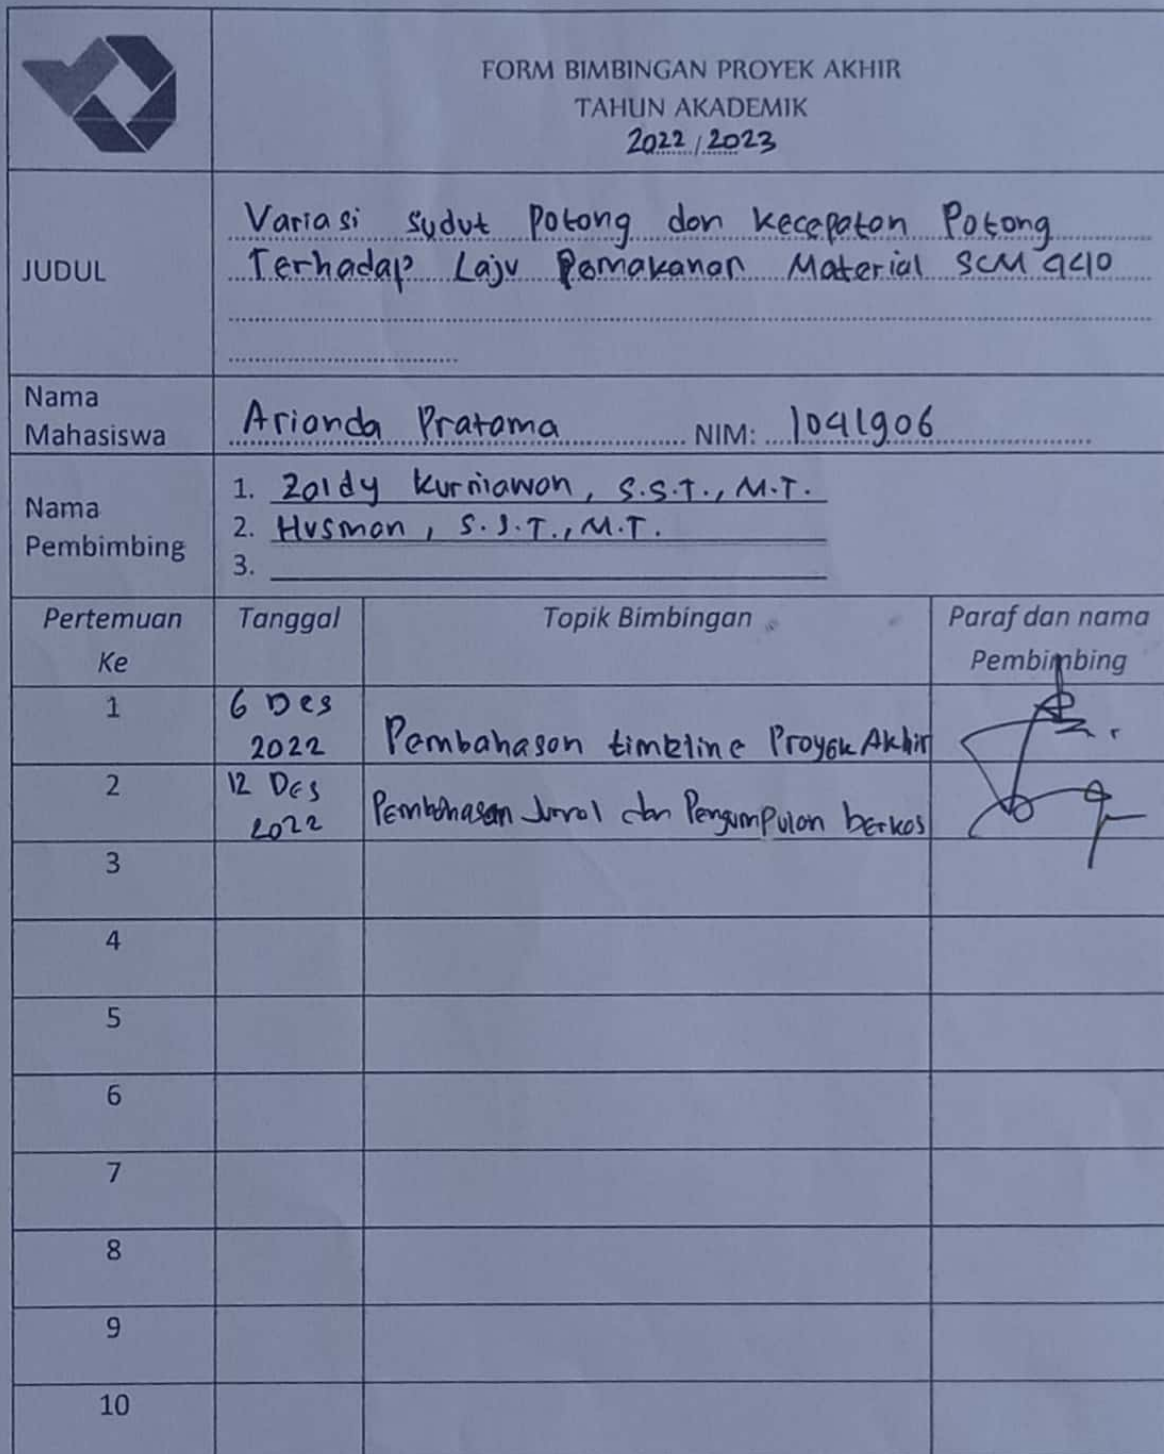 FORM BIMBINGAN PROYEK AKHIR
TAHUN AKADEMIK
2022/2023
JUDUL
Variasi sudut Potong dan kecepatan Potong
Terhadap Laju Pemakanan Material SCM 440
Nama
Mahasiswa
Arianda Pratama NIM: 1041906
Nama
Pembimbing
1. Zaldy Kurniawan, S.S.T., M.T.
2. Husman, S.S.T., M.T.
3.
Pertemuan
Ke
Tanggal
Topik Bimbingan
Paraf dan nama
Pembimbing
1
6 Des
2022
Pembahasan timeline Proyek Akhir
2
12 Des
2022
Pembahasan Jurnal dan Pengumpulan berkas
3
4
5
6
7
8
9
10